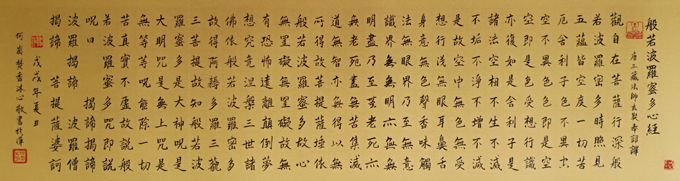 般若波羅蜜多心經
唐三藏法師玄奘奉詔譯
觀自在菩薩行深般
若波羅蜜多時照見
五蘊皆空度一切苦
厄舍利子色不異空
空不異色色即是空
空即是色受想行識
亦復如是舍利子是
諸法空相不生不滅
不垢不淨不增不減
是故空中無色無受
想行識無眼耳鼻舌
身意無色聲香味觸
法無眼界乃至無意
識界無無明亦無無
明盡乃至無老死亦
無老死盡無苦集滅
道無智亦無得以無
所得故菩提薩埵依
般若波羅蜜多故心
無罣礙無罣礙故無
有恐怖遠離顛倒夢
想究竟涅槃三世諸
佛依般若波羅蜜多
故得阿耨多羅三藐
三菩提故知般若波
羅蜜多是大神呪是
大明呪是無上呪是
無等等呪能除一切
苦真實不虛故說般
若波羅蜜多呪即說
呪曰 揭諦揭諦
波羅揭諦 波羅僧
揭諦 菩提薩婆訶
戊戌年夏日
沐心敬書於